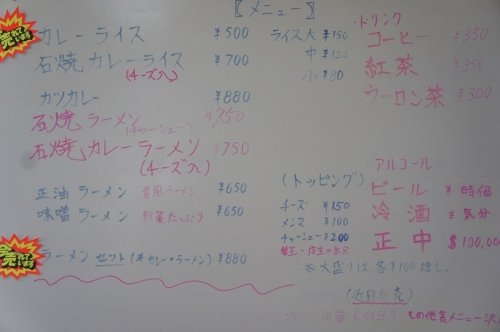 〖メニュー〗
カレーライス ¥500
石焼カレーライス ¥700
(チーズ入)
カツカレー ¥880
石焼ラーメン ¥750
石焼カレーラーメン ¥750
(チーズ入)
正油ラーメン 昔風ラーメン ¥650
味噌ラーメン 野菜たっぷり ¥650
ラーメンセット (半カレー+ラーメン) ¥880
ライス大 ¥150
中 ¥120
小 ¥80
(トッピング)
チーズ ¥150
メンマ ¥100
チャーシュー ¥200
※大盛りは各¥100増し。
(近日発売)
その他裏メニュー沢
・ドリンク
コーヒー ¥350
紅茶 ¥350
ウーロン茶 ¥300
アルコール
ビール ¥時価
冷酒 ¥気分
正中 $100,000